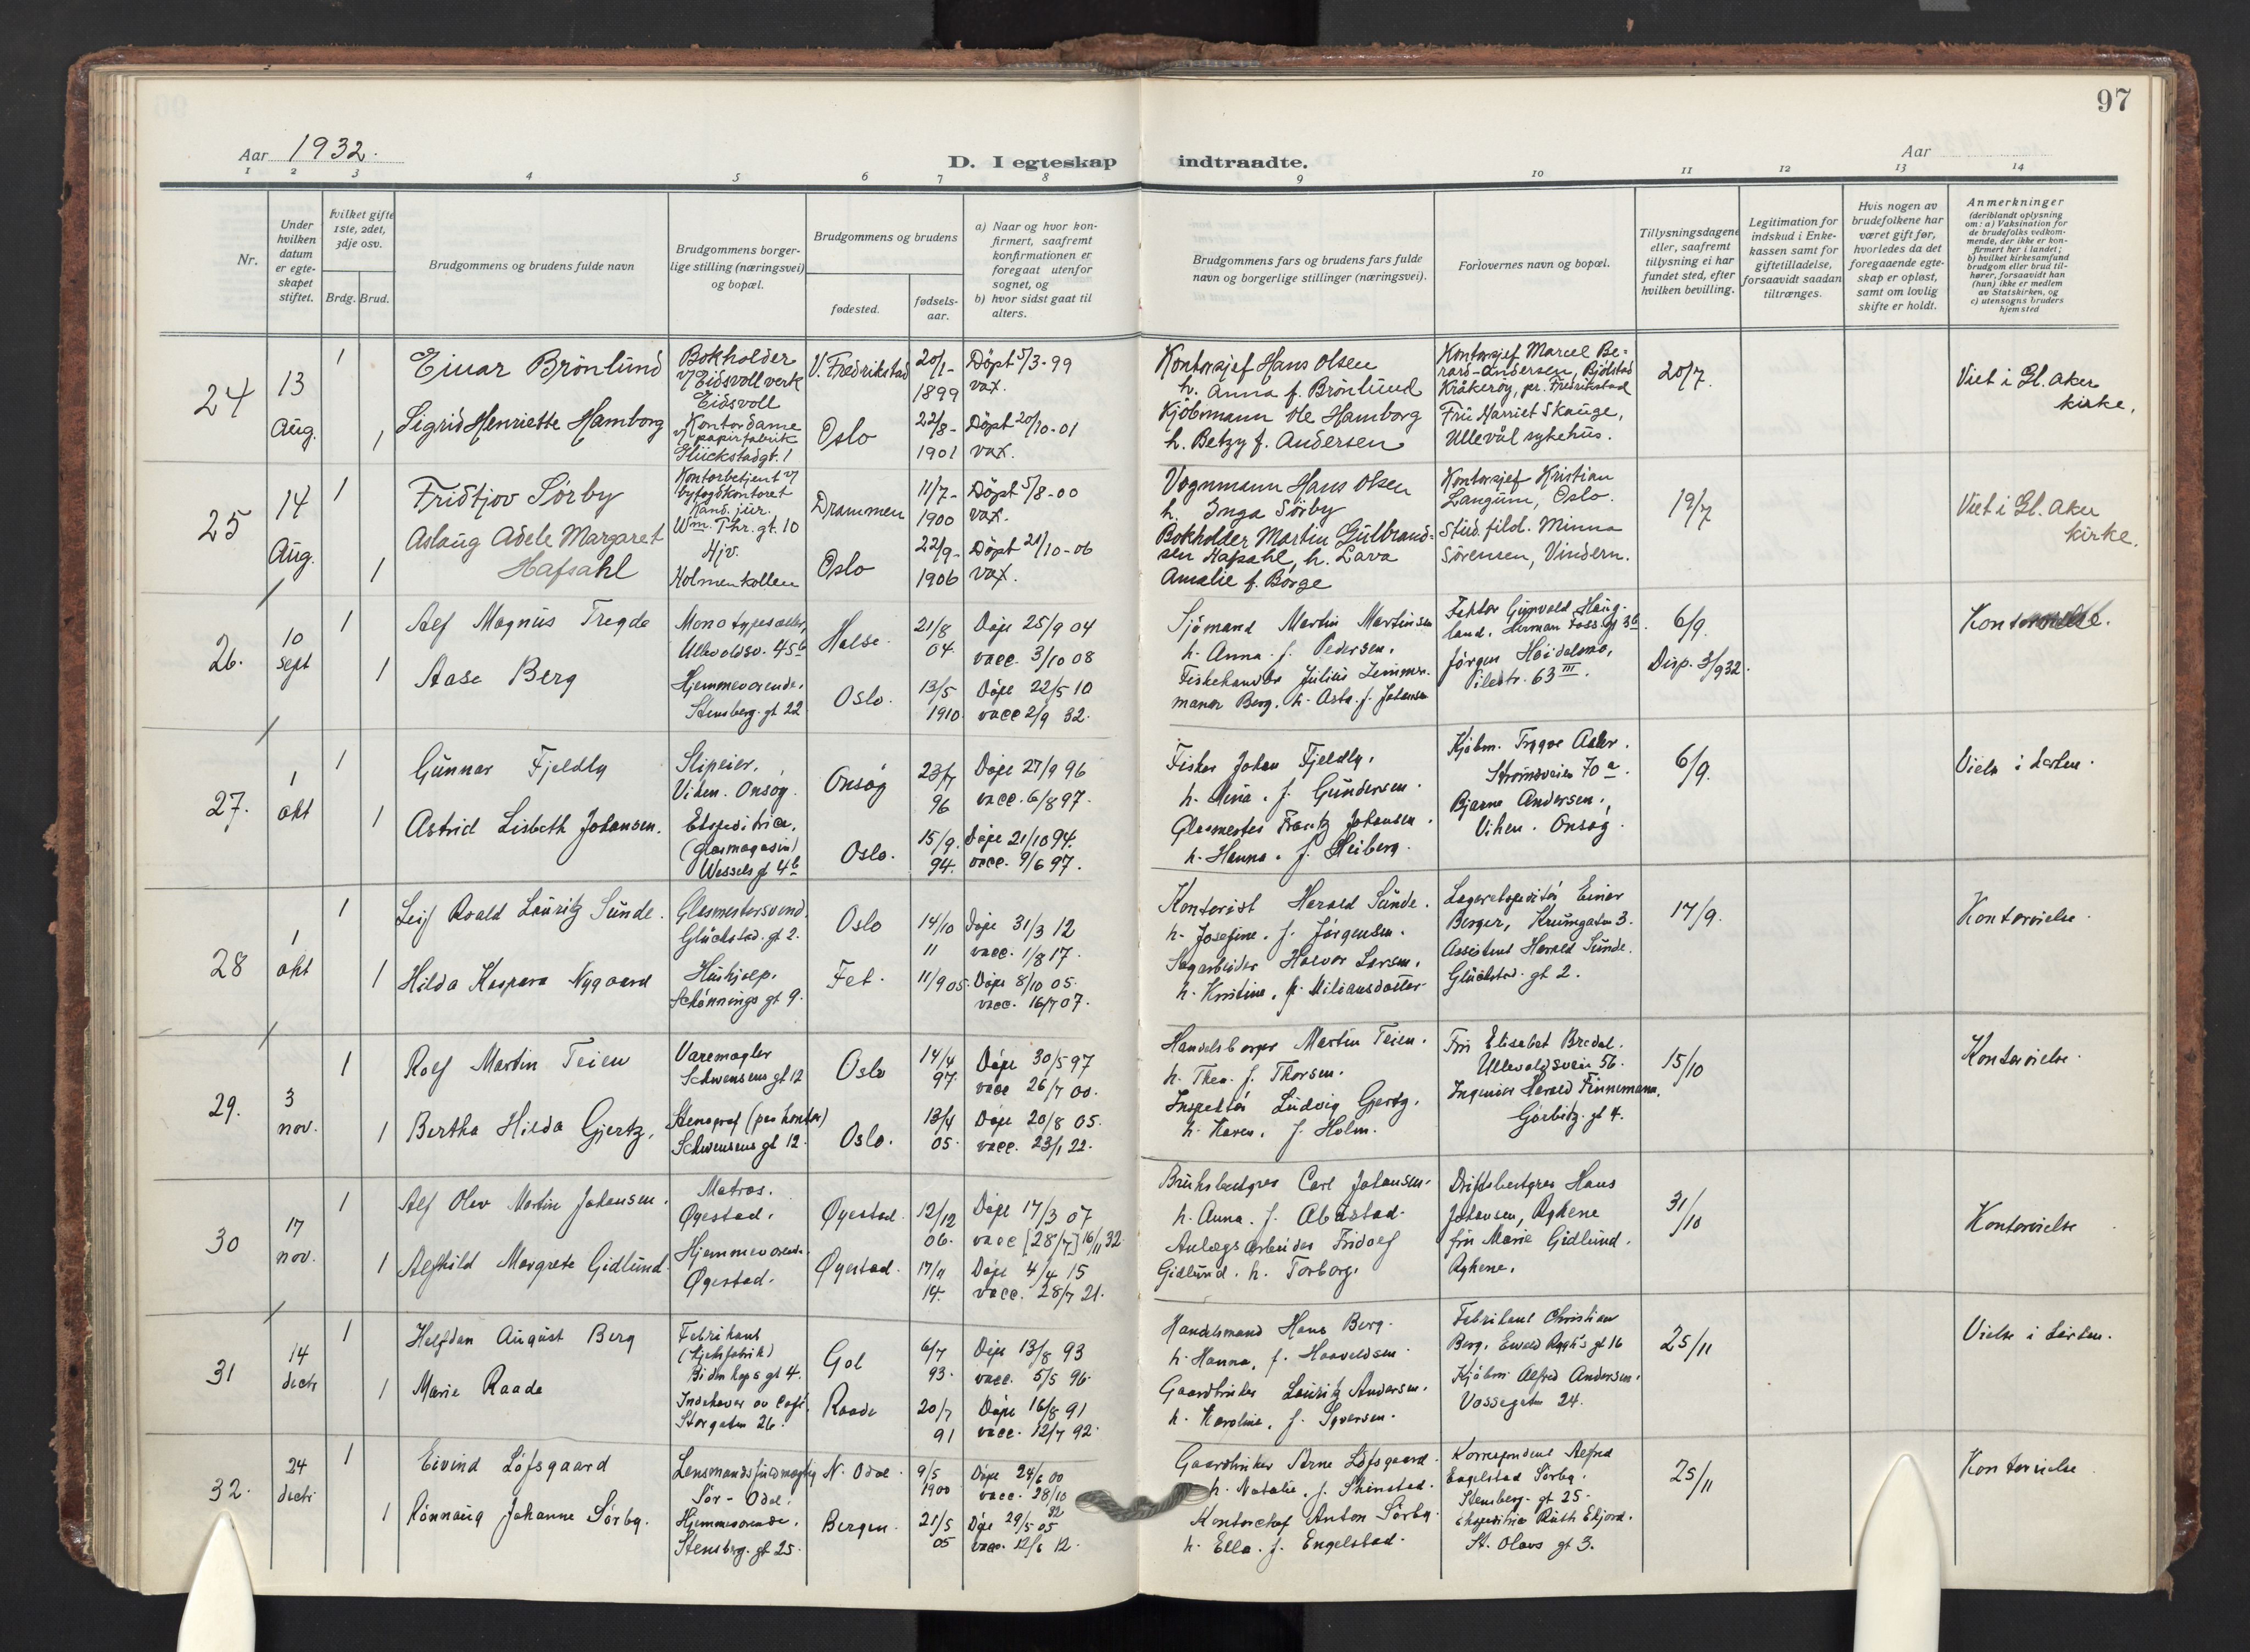 97
Aar 1932.
D. I egteskap indtraadte.
Aar
1 2 3 4 5 6 7 8 9 10 11 12 13 14
Nr.
Under hvilken datum er egteskapet stiftet.
Hvilket gifte 1ste, 2det, 3dje osv.
Brdg. Brud.
Brudgommens og brudens fulde navn
Brudgommens borgerlige stilling (næringsvei) og bopæl.
Brudgommens og brudens
fødested.
fødselsaar.
a) Naar og hvor konfirmert, saafremt konfirmationen er foregaat utenfor sognet, og
b) hvor sidst gaat til alters.
Brudgommens fars og brudens fars fulde navn og borgerlige stillinger (næringsvei).
Forlovernes navn og bopæl.
Tillysningsdagene eller, saafremt tillysning ei har fundet sted, efter hvilken bevilling.
Legitimation for indskud i Enkekassen samt for giftetilladelse, forsaavidt saadan tiltrænges.
Hvis nogen av brudefolkene har været gift før, hvorledes da det foregaaende egteskap er opløst, samt om lovlig skifte er holdt.
Anmerkninger
(deriblandt oplysning om: a) Vaksination for de brudefolks vedkommende, der ikke er konfirmert her i landet; b) hvilket kirkesamfund brudgom eller brud tilhører, forsaavidt han (hun) ikke er medlem av Statskirken, og c) utensogns bruders hjemsted
24
13 Aug.
1
Einar Brönlund
Bokholder v/ Eidsvoll verk Eidsvoll
V. Fredrikstad
20/1-1899
Döpt 5/3-99 vax.
Kontorsjef Hans Olsen
h. Anna f. Brönlund
Kontorsjef Marcel Berard-Andersen, Bjölstad Kråkeröy, pr. Fredrikstad
20/7.
Viet i Gl. Aker kirke.
1
Sigrid Henriette Hamborg
Kontordame v/ papirfabrik Glückstadgt. 1
Oslo
22/8-1901
Döpt 20/10-01 vax.
Kjöbmann Ole Hamborg
h. Betzy f. Andersen
Frü Harriet Skauge, Ullevål sykehüs.
25
14 Aug.
1
Fridtjov Sörby
Kontorbetjent v/ byfogdkontoret Kand. jur. Wm. Thr. gt. 10
Drammen
11/7-1900
Döpt 5/8-00 vax.
Vognmann Hans Olsen
h. Inga Sörby
Kontorsjef Kristian Langum, Oslo.
19/7
Viet i Gl. Aker kirke.
1
Aslaug Adele Margaret Hafsahl
Hjv. Holmenkollen
Oslo
22/9-1906
Döpt 21/10-06 vax.
Bokholder Martin Gulbrandsen Hafsahl, h. Lava
Amalie f. Borge
Stud. filol. Minna Sörensen, Vindern.
26.
10 sept
1
Alf Magnus Tregde
Monotypesetter, Ullevoldsv. 45b
Halse.
21/8 04.
Döpt 25/9 04
vacc. 3/10 08
Sjömand Martin Martinsen
h. Anna f. Pedersen.
6/9.
Disp. 3/9 32.
1
Aase Berg
Hjemmeværende. Stensberg. gt 22
Oslo.
13/5 1910.
Döpt 22/5 10
vacc 2/9 32.
Jörgen Heidelmo, Pilestr. 63 III.
27.
1 okt
1
Gunnar Fjeldly
Slipeier. Viken. Onsöy.
Onsöy
23/7 96
Döpt 27/9 96
vacc. 6/8 97.
Fisker Johan Fjeldly.
h. Mina. f. Gundersen.
Kjöbm. Trygve Asker. Strömsveien 70a.
6/9.
1
Astrid Lisbeth Johansen.
Ekspeditrice, (Glasmagasin) Wessels gt 4b
Oslo.
15/9. 94.
Döpt 21/10 94.
vacc. 9/6 97.
Glasmester Frantz Johansen.
h. Hanna. f. Heiberg.
Bjarne Andersen. Viken. Onsöy.
28
1 okt
1
Leif Roald Lauritz Sunde.
Glasmestersvend. Glückstad. gt 2.
Oslo
14/10 11
Döpt 31/3 12
vacc. 1/8 17.
Kontorist Harald Sunde.
h. Josefine. f. Jörgensen.
Lagerekspeditör Einar Berger, Krumgaten 3.
17/9.
Kontorvielse.
1
Hilda Kaspara Nygaard
Hushjelp. Schönnings gt 9.
Fet.
11/9 05.
Döpt 8/10 05.
vacc. 16/7 07.
Sagarbeider Halvor Larsen.
h. Kristine, f. Miliansdatter
Assistent Harald Sunde. Glückstad. gt 2.
29.
3 nov.
1
Rolf Martin Teien
Varemægler Schwensens gt 12
Oslo
14/4 97.
Döpt 30/5 97
vacc 26/7 00.
Handelsborger Martin Teien.
h. Thea. f. Thorsen.
Fru Elisabet Bredal. Ullevoldsveien 56.
15/10
Kontorvielse.
1
Bertha Hilda Gjertz.
Stenograf (paa kontor) Schwensens gt 12.
Oslo.
13/4 05.
Döpt 20/8 05.
vacc. 23/1 22.
Inspektör Ludvig Gjertz.
h. Karen. f. Holm.
Ingeniör Harald Finnemann. Gjörbitz. gt 4.
30
17 nov.
1
Alf Olav Martin Johansen.
Matros. Øyestad.
Øyestad.
12/12 06.
Döpt 17/3 07
vacc [28/7] 16/11 32.
Bruksbestyrer Carl Johansen.
h. Anna. f.
Driftsbestyrer Hans Johansen, Rykene
31/10
Kontorvielse
1
Alfhild Margrete Gidlund.
Hjemmeværende. Øyestad.
Øyestad.
14.
Döpt 4/4 15
vacc. 28/7 21.
Anlægsarbeider Fridolf Gidlund. h. Torborg.
fru Marie Gidlund. Rykene.
31
14 dec
1
Halfdan August Berg
Fabrikant (kjeksfabrik) gt 4.
Gol
6/7 93.
Döpt 13/8 93
vacc. 5/5 96.
Handelsmand Hans Berg.
h. Hanna, f. Haavaldsen.
Fabrikant Christian Berg. Ewald Ryghs gt 16
25/11
1
Marie Raade
Indehaver av Café. Storgaten 26.
Raade
20/7 91
Döpt 16/8 91
vacc. 12/7 92.
Gaardbruker Lauritz Andersen.
h. Karoline, f. Syversen.
Kjöbm. Alfred Andersen. Vossegaten 24.
32.
24 dec
1
Eivind Löfsgaard
Lensmandsfuldmægtig Sör-Odal.
N. Odal.
9/5 1900
Döpt 24/6 00
vacc. 28/10 32
Gaardbruker Arne Löfsgaard.
h. Natalie. f. Skinstad.
Korrespondent Alfred Engelstad Sörby. Stensberg. gt 25.
25/11
Kontorvielse
1
Rönnaug Johanne Sörby.
Hjemmeværende. Stensberg. gt 25.
Bergen.
21/5 05
Döpt 29/5 05
vacc. 12/6 12.
Kontorchef Anton Sörby.
h. Ella. f. Engelstad.
Ekspeditrice Ruth Ekjord. St. Olavs gt 3.